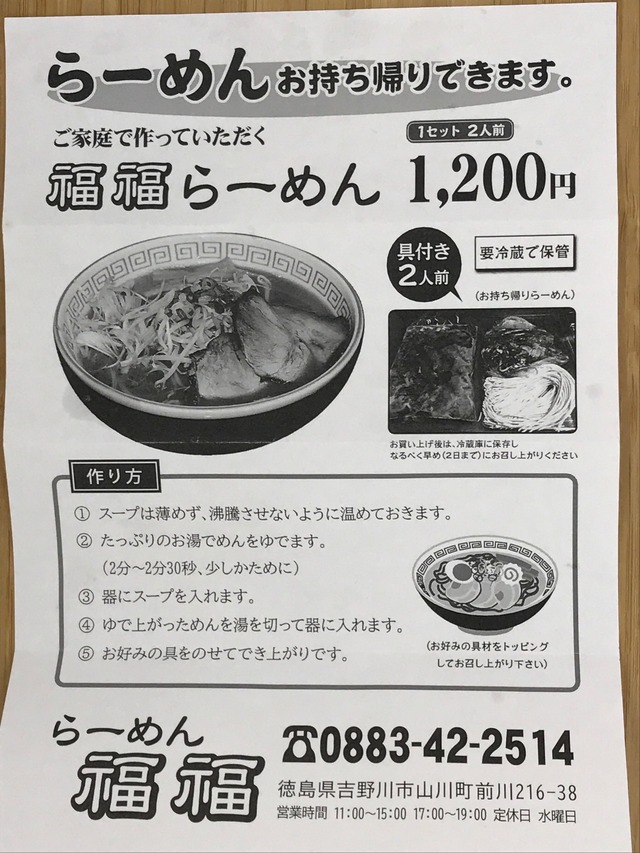 らーめんお持ち帰りできます。
ご家庭で作っていただく
1セット 2人前
福福らーめん 1,200円
具付き
2人前
要冷蔵で保管
(お持ち帰りらーめん)
お買い上げ後は、冷蔵庫に保存し
なるべく早め(2日まで)にお召し上がりください
作り方
① スープは薄めず、沸騰させないように温めておきます。
② たっぷりのお湯でめんをゆでます。
(2分～2分30秒、少しかために)
③ 器にスープを入れます。
④ ゆで上がっためんを湯を切って器に入れます。
⑤ お好みの具をのせてでき上がりです。
(お好みの具材をトッピング
してお召し上がり下さい)
らーめん
福福
☎0883-42-2514
徳島県吉野川市山川町前川216-38
営業時間 11:00～15:00 17:00～19:00 定休日 水曜日